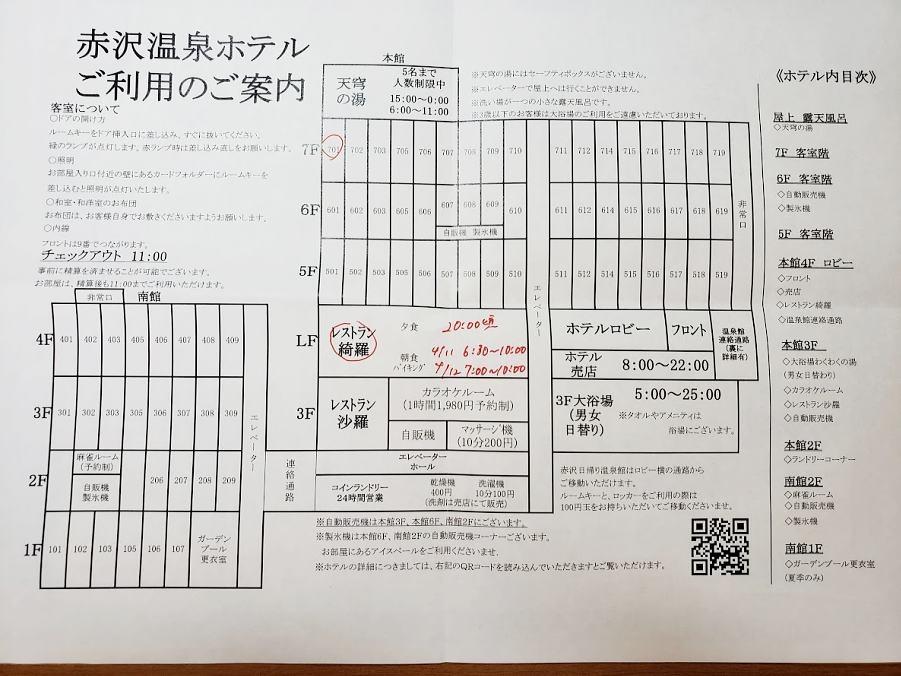 赤沢温泉ホテル
ご利用のご案内
客室について
○ドアの開け方
ルームキーをドア挿入口に差し込み、すぐに抜いてください。
緑のランプが点灯します。赤ランプ時は差し込み直しをお願いします。
○照明
お部屋入り口付近の壁にあるカードフォルダーにルームキーを
差し込むと照明が点灯いたします。
○和室・和洋室のお布団
お布団は、お客様自身でお敷きくださいますようお願いします。
○内線
フロントは9番でつながります。
チェックアウト 11:00
事前に精算を済ませることが可能でございます。
お部屋は、精算後も11:00までご利用いただけます。
本館
天穹の湯
5名まで
人数制限中
15:00~0:00
6:00~11:00
※天穹の湯にはセーフティボックスがございません。
※エレベーターで屋上へは行くことができません。
※洗い場が一つの小さな露天風呂です。
※3歳以下のお客様は大浴場のご利用をご遠慮いただいております。
7F 701 702 703 705 706 707 708 709 710 711 712 714 715 716 717 718 719
6F 601 602 603 605 606 607 608 609 610 611 612 614 615 616 617 618 619
自販機 製氷機
非常口
5F 501 502 503 505 506 507 508 509 510 511 512 514 515 516 517 518 519
エレベーター
LF レストラン綺羅
夕食 20:00頃
朝食バイキング
4/11 6:30~10:00
4/12 7:00~10:00
ホテルロビー
フロント
温泉館連絡通路(裏に詳細有)
ホテル売店 8:00~22:00
3F レストラン沙羅
カラオケルーム
(1時間1,980円予約制)
自販機
マッサージ機
(10分200円)
3F大浴場
(男女日替り)
5:00~25:00
※タオルやアメニティは
浴場にございます。
エレベーターホール
連絡通路
コインランドリー
24時間営業
乾燥機 400円
洗濯機 10分100円
(洗剤は売店にて販売)
赤沢日帰り温泉館はロビー横の通路から
ご移動いただけます。
ルームキーと、ロッカーをご利用の際は
100円玉をお持ちいただいてご移動くださいませ。
※自動販売機は本館3F、本館6F、南館2Fにございます。
※製氷機は本館6F、南館2Fの自動販売機コーナーございます。
お部屋にあるアイスペールをご利用くださいませ。
※ホテルの詳細につきましては、右記のQRコードを読み込んでいただきますとご覧いただけます。
非常口
南館
4F 401 402 403 405 406 407 408 409
3F 301 302 303 305 306 307 308 309
エレベーター
2F
麻雀ルーム
(予約制)
自販機
製氷機
206 207 208 209
1F 101 102 103 105 106 107
ガーデンプール更衣室
《ホテル内目次》
屋上 露天風呂
◇天穹の湯
7F 客室階
6F 客室階
◇自動販売機
◇製氷機
5F 客室階
本館4F ロビー
◇フロント
◇売店
◇レストラン綺羅
◇温泉館連絡通路
本館3F
◇大浴場わくわくの湯
(男女日替わり)
◇カラオケルーム
◇レストラン沙羅
◇自動販売機
本館2F
◇ランドリーコーナー
南館2F
◇麻雀ルーム
◇自動販売機
◇製氷機
南館1F
◇ガーデンプール更衣室
(夏季のみ)